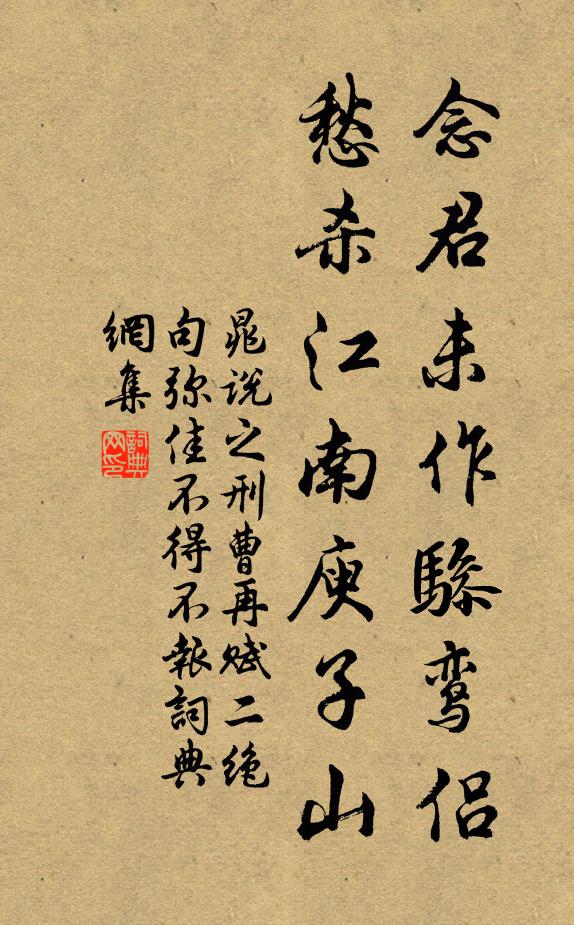 念君未作骖鸾侣
愁杀江南庾子山
晁说之刑曹再赋二绝
句弥佳不得不報詞典
網集
詞典
网印